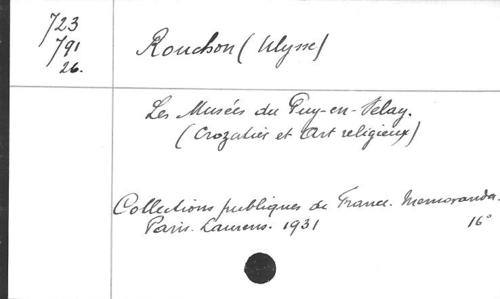 723
791
26.
Rouchon (Ulysse)
Les Musées du Puy-en-Velay.
(Crozatier et Art religieux)
Collections publiques de France. Memoranda.
Paris. Laurens. 1931 16°